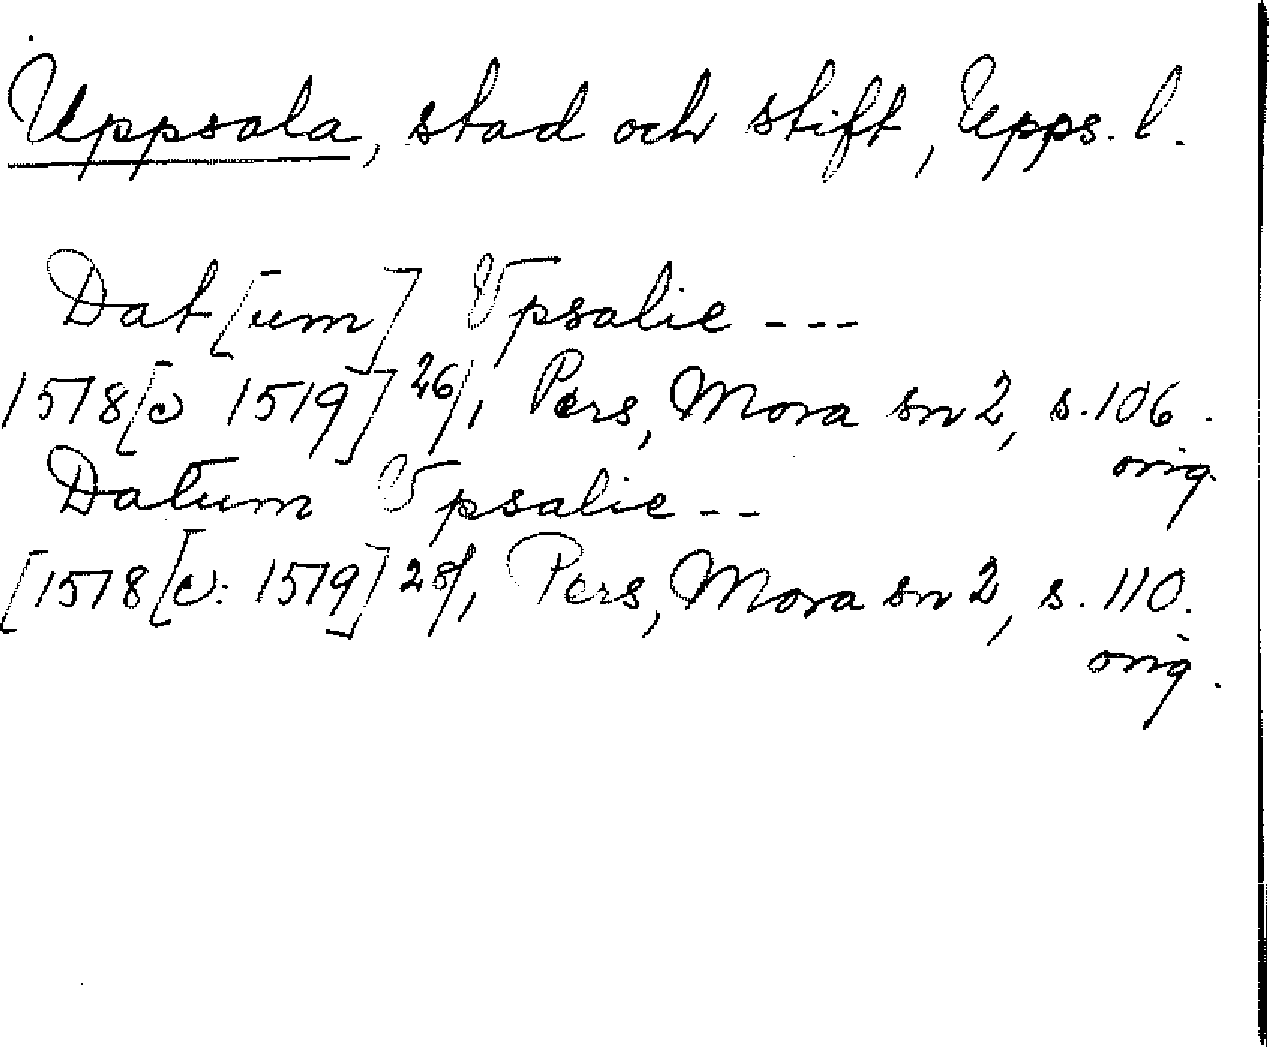 Uppsala, stad och stift, Upps. l.
Dat[um] Vpsalie ---
1518[c 1519] 26/, Pers, Mora sn 2, s. 106.
orig.
Datum Vpsalie --
[1518[c: 1519] 28/, Pers, Mora sn 2, s. 110.
orig.